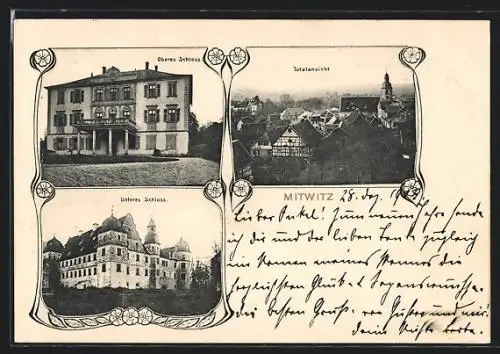 Oberes Schloss.
Totalansicht
Unteres Schloss.
MITWITZ 28. Dez. 19
Lieber Onkel! Zum neuen Jahre sende
ich dir und der lieben Tante zugleich
im Namen meines Mannes die
herzlichsten Glück- & Segenswünsche.
die besten Grüße von Gustav und mir!
deine Nichte